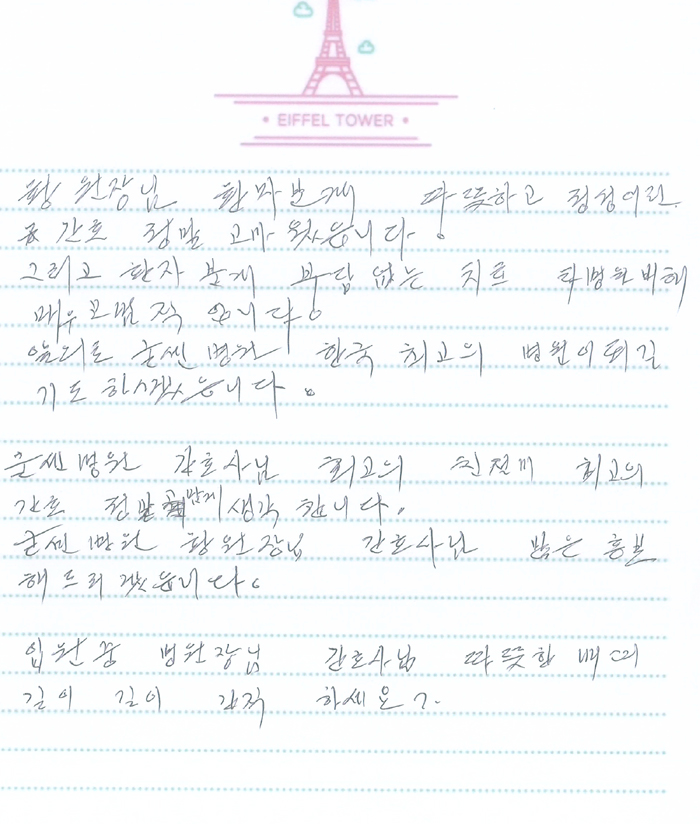 EIFFEL TOWER
황 원장님 환자분게 따뜻하고 정성어린
간호 정말 고마웠습니다.
그리고 환자분게 부담 없는 치료 타병원비해
매우 모범적 입니다.
앞의로 굳쎈병원 한국 최고의 병원이되길
기도 하시겠습니다.
굳쎈병원 간호사님 최고의 친절게 최고의
간호 정말 맙게 생각 합니다.
굳쎈병원 황원장님 간호사님 많은 홍보
해드리겠습니다.
입원중 병원장님 간호사님 따뜻한 배려
길이 길이 간직 하세요?.